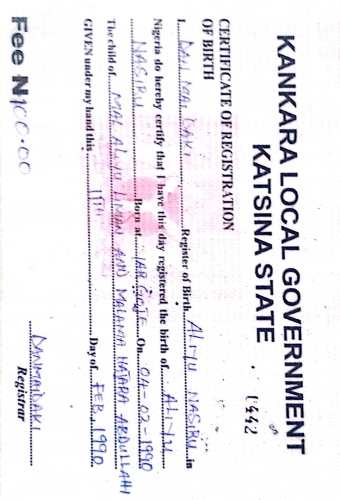 KANKARA LOCAL GOVERNMENT
KATSINA STATE
1442
CERTIFICATE OF REGISTRATION
OF BIRTH
I. DAN MAI DAKI Register of Birth ALIYU NASIRU in
Nigeria do hereby certify that I have this day registered the birth of ALIYU
NASIRU Born at On 04-02-1990
The child of MAL ALIYU LIMAN AND MALAMA HAJARA ABDULLAHI
GIVEN under my hand this Day of FEB, 1990
DANMAIDAKI
Registrar
Fee N100.00